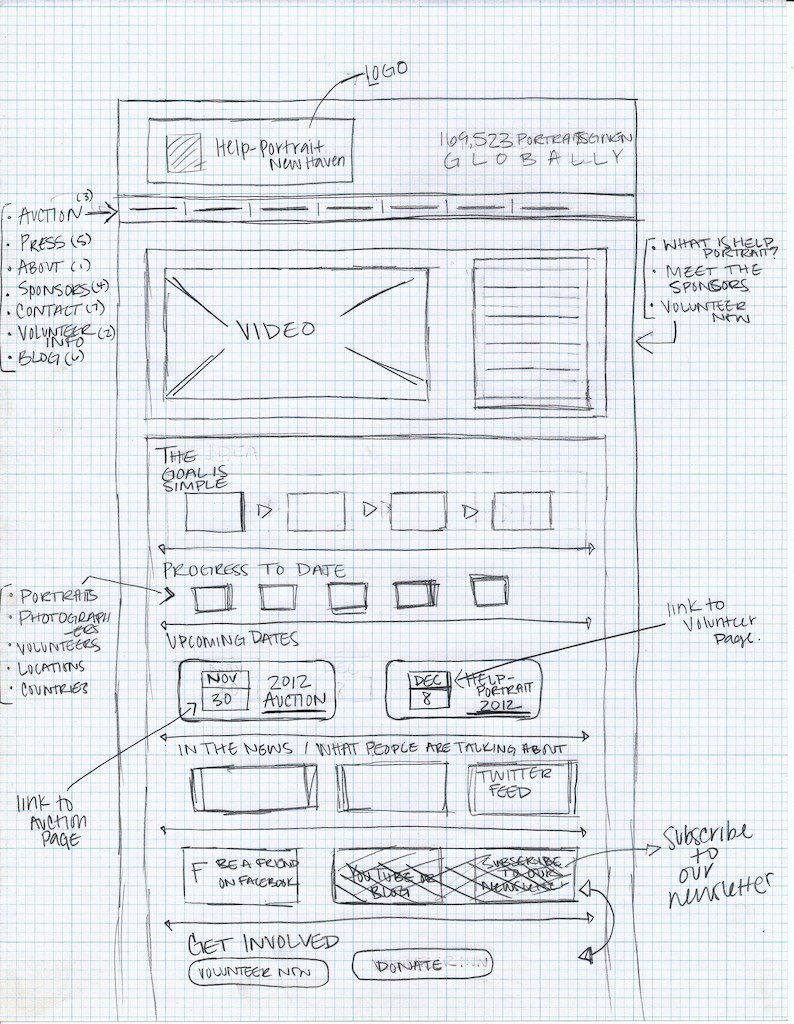 LOGO
Help-Portrait
New Haven
169,523 PORTRAITS GIVEN
GLOBALLY
• AUCTION (3)
• PRESS (5)
• ABOUT (1)
• SPONSORS (4)
• CONTACT (7)
• VOLUNTEER (2)
INFO
• BLOG (6)
• WHAT IS HELP
PORTRAIT?
• MEET THE
SPONSORS
• VOLUNTEER
NOW
VIDEO
THE
GOAL IS
SIMPLE
PROGRESS TO DATE
• PORTRAITS
• PHOTOGRAPH
-ERS
• VOLUNTEERS
• LOCATIONS
• COUNTRIES
UPCOMING DATES
link to
Volunteer
Page.
NOV
30
2012
AUCTION
DEC
8
HELP-
PORTRAIT
2012
link to
Auction
PAGE
IN THE NEWS / WHAT PEOPLE ARE TALKING ABOUT
TWITTER
FEED
F BE A FRIEND
ON FACEBOOK
YOUTUBE OR
BLOG
SUBSCRIBE
TO OUR
NEWSLETTER
Subscribe
to
our
newsletter
GET INVOLVED
VOLUNTEER NOW
DONATE